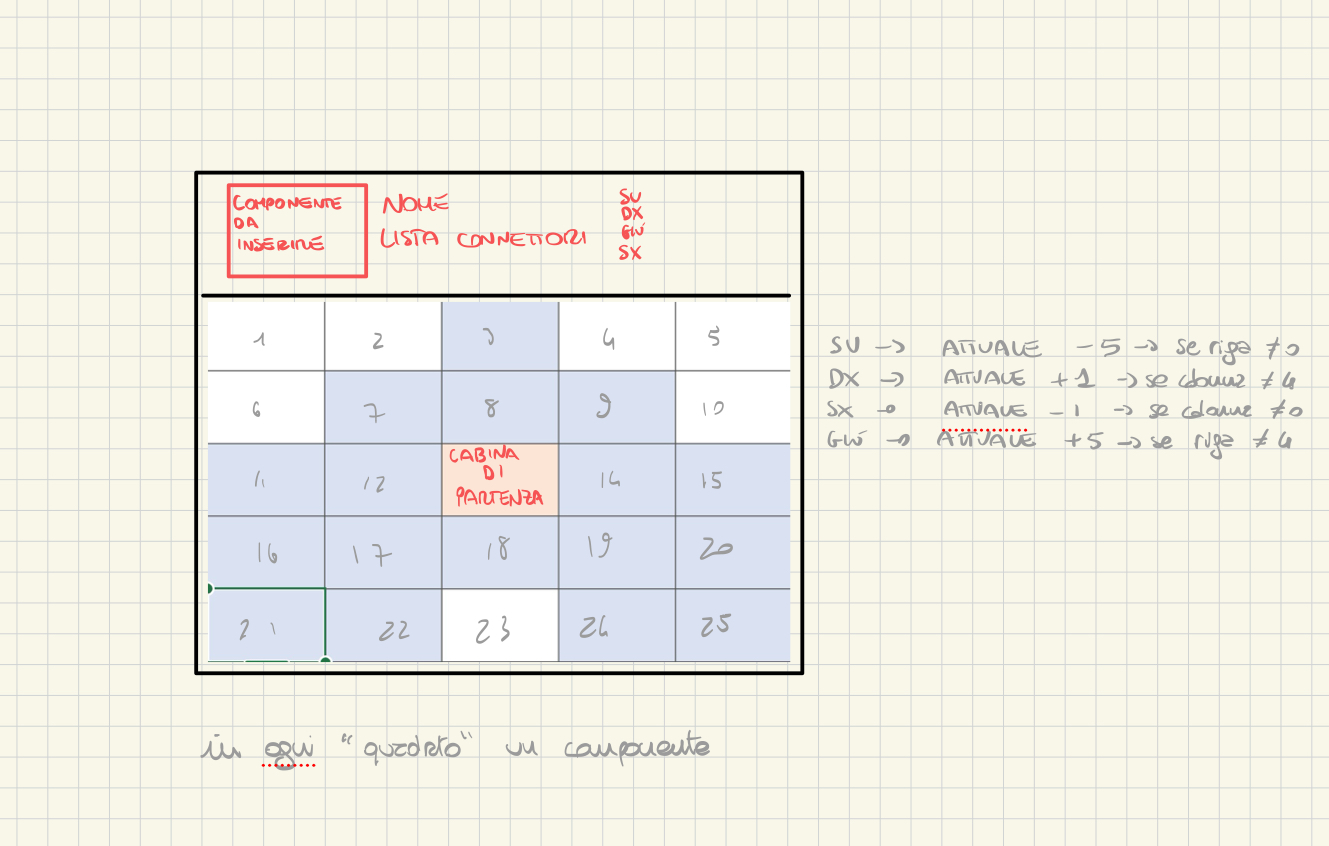 COMPONENTE
DA
INSERIRE
NOME
LISTA CONNETTORI
SU
DX
GIÙ
SX
1 2 3 4 5
6 7 8 9 10
11 12 CABINA DI PARTENZA 14 15
16 17 18 19 20
21 22 23 24 25
SU → ATTUALE -5 → se riga ≠ 0
DX → ATTUALE +1 → se colonna ≠ 4
SX → ATTUALE -1 → se colonna ≠ 0
GIÙ → ATTUALE +5 → se riga ≠ 4
in ogni "quadrato" un componente